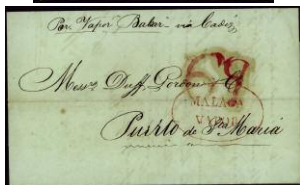 Por Vapor Balear via Cadiz
Messrs. Duff Gordon & Co
MALAGA
VAPOR
Puerto de Sta Maria